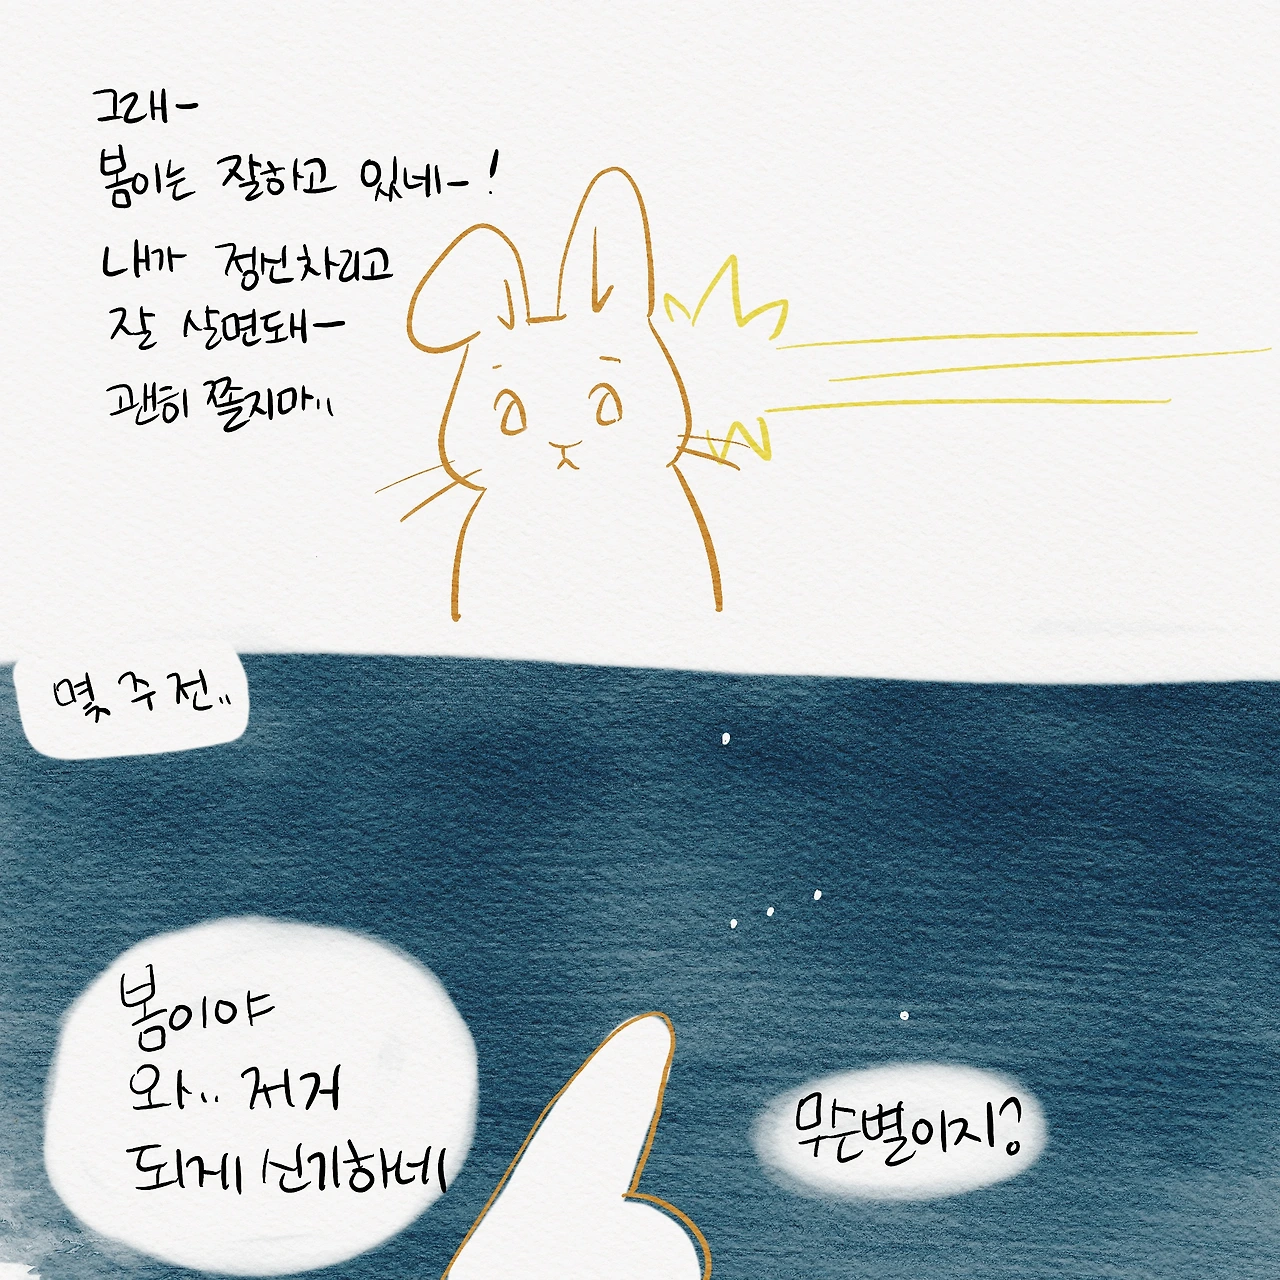 그래-
봄이는 잘하고 있네-!
내가 정신차리고
잘 살면돼-
괜히 쫄지마..
몇 주 전..
봄이야
와.. 저거
되게 신기하네
무슨별이지?